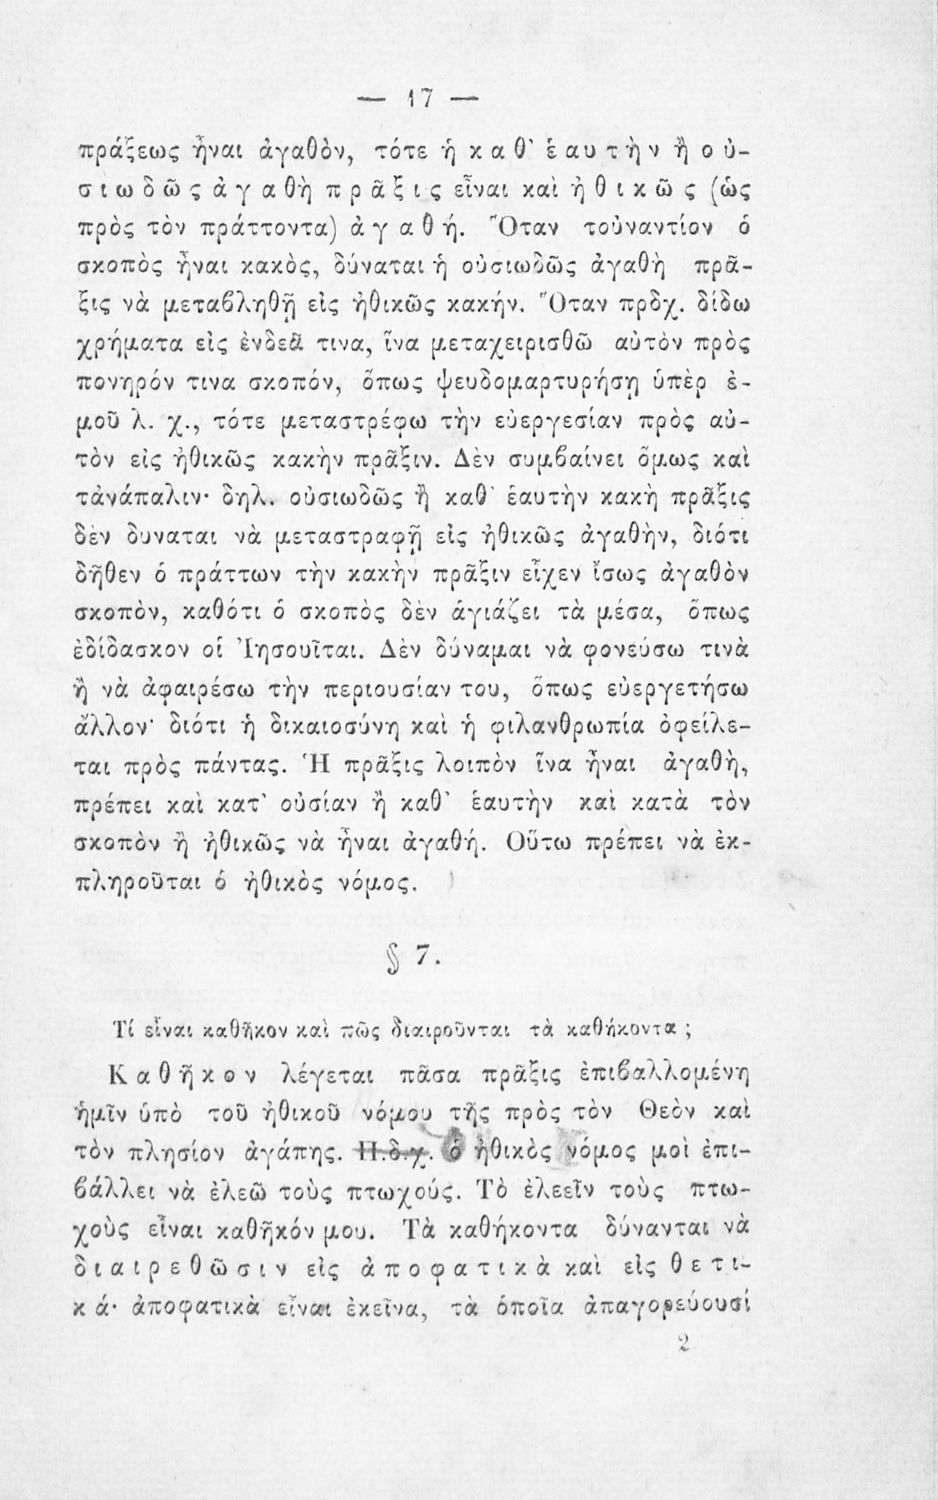 — 17 —
πράξεως ἦναι ἀγαθὸν, τότε ἡ καθ' ἑαυτὴν ἢ οὐ-
σιωδῶς ἀγαθὴ πρᾶξις εἶναι καὶ ἠθικῶς (ὡς
πρὸς τὸν πράττοντα) ἀγαθή. Ὅταν τοὐναντίον ὁ
σκοπὸς ἦναι κακὸς, δύναται ἡ οὐσιωδῶς ἀγαθὴ πρᾶ-
ξις νὰ μεταβληθῇ εἰς ἠθικῶς κακήν. Ὅταν πρδχ. δίδω
χρήματα εἰς ἐνδεᾶ τινα, ἵνα μεταχειρισθῶ αὐτὸν πρὸς
πονηρόν τινα σκοπόν, ὅπως ψευδομαρτυρήσῃ ὑπὲρ ἐ-
μοῦ λ. χ., τότε μεταστρέφω τὴν εὐεργεσίαν πρὸς αὐ-
τὸν εἰς ἠθικῶς κακὴν πρᾶξιν. Δὲν συμβαίνει ὅμως καὶ
τἀνάπαλιν· δηλ. οὐσιωδῶς ἢ καθ' ἑαυτὴν κακὴ πρᾶξις
δὲν δυναται νὰ μεταστραφῇ εἰς ἠθικῶς ἀγαθὴν, διότι
δῆθεν ὁ πράττων τὴν κακὴν πρᾶξιν εἶχεν ἴσως ἀγαθὸν
σκοπὸν, καθότι ὁ σκοπὸς δὲν ἁγιάζει τὰ μέσα, ὅπως
ἐδίδασκον οἱ Ἰησουῖται. Δὲν δύναμαι νὰ φονεύσω τινὰ
ἢ νὰ ἀφαιρέσω τὴν περιουσίαν του, ὅπως εὐεργετήσω
ἄλλον· διότι ἡ δικαιοσύνη καὶ ἡ φιλανθρωπία ὀφείλε-
ται πρὸς πάντας. Ἡ πρᾶξις λοιπὸν ἵνα ἦναι ἀγαθὴ,
πρέπει καὶ κατ' οὐσίαν ἢ καθ' ἑαυτὴν καὶ κατὰ τὸν
σκοπὸν ἢ ἠθικῶς νὰ ἦναι ἀγαθή. Οὕτω πρέπει νὰ ἐκ-
πληροῦται ὁ ἠθικὸς νόμος.
§ 7.
Τί εἶναι καθῆκον καὶ πῶς διαιροῦνται τὰ καθήκοντα ;
Καθῆκον λέγεται πᾶσα πρᾶξις ἐπιβαλλομένη
ἡμῖν ὑπὸ τοῦ ἠθικοῦ νόμου τῆς πρὸς τὸν Θεὸν καὶ
τὸν πλησίον ἀγάπης. Π.δ.χ. ὁ ἠθικὸς νόμος μοὶ ἐπι-
βάλλει νὰ ἐλεῶ τοὺς πτωχούς. Τὸ ἐλεεῖν τοὺς πτω-
χοὺς εἶναι καθῆκόν μου. Τὰ καθήκοντα δύνανται νὰ
διαιρεθῶσιν εἰς ἀποφατικὰ καὶ εἰς θετι-
κά· ἀποφατικὰ εἶναι ἐκεῖνα, τὰ ὁποῖα ἀπαγορεύουσί
2